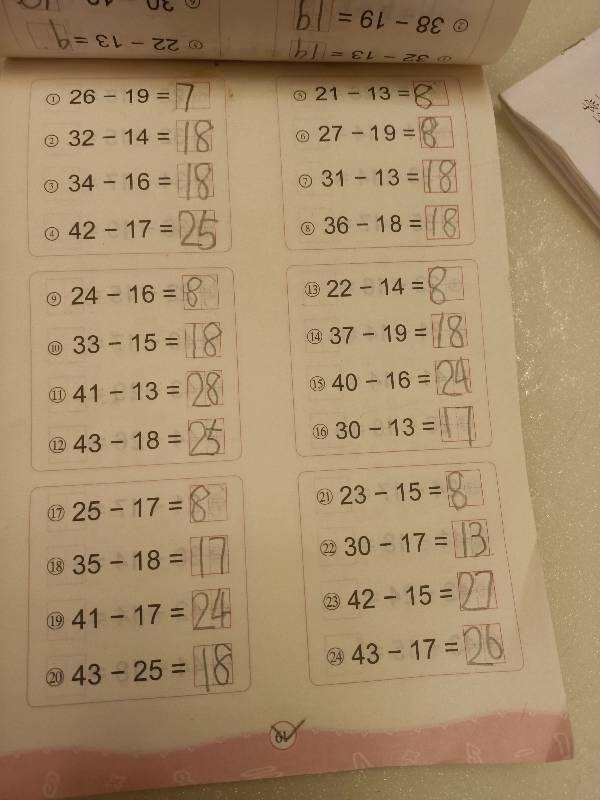 ① 26 − 19 = 7
② 32 − 14 = 18
③ 34 − 16 = 18
④ 42 − 17 = 25
⑤ 21 − 13 = 8
⑥ 27 − 19 = 8
⑦ 31 − 13 = 18
⑧ 36 − 18 = 18
⑨ 24 − 16 = 8
⑩ 33 − 15 = 18
⑪ 41 − 13 = 28
⑫ 43 − 18 = 25
⑬ 22 − 14 = 8
⑭ 37 − 19 = 18
⑮ 40 − 16 = 24
⑯ 30 − 13 = 17
⑰ 25 − 17 = 8
⑱ 35 − 18 = 17
⑲ 41 − 17 = 24
⑳ 43 − 25 = 18
㉑ 23 − 15 = 8
㉒ 30 − 17 = 13
㉓ 42 − 15 = 27
㉔ 43 − 17 = 26
38 − 19 = 19
32 − 13 = 19
22 − 13 = 9